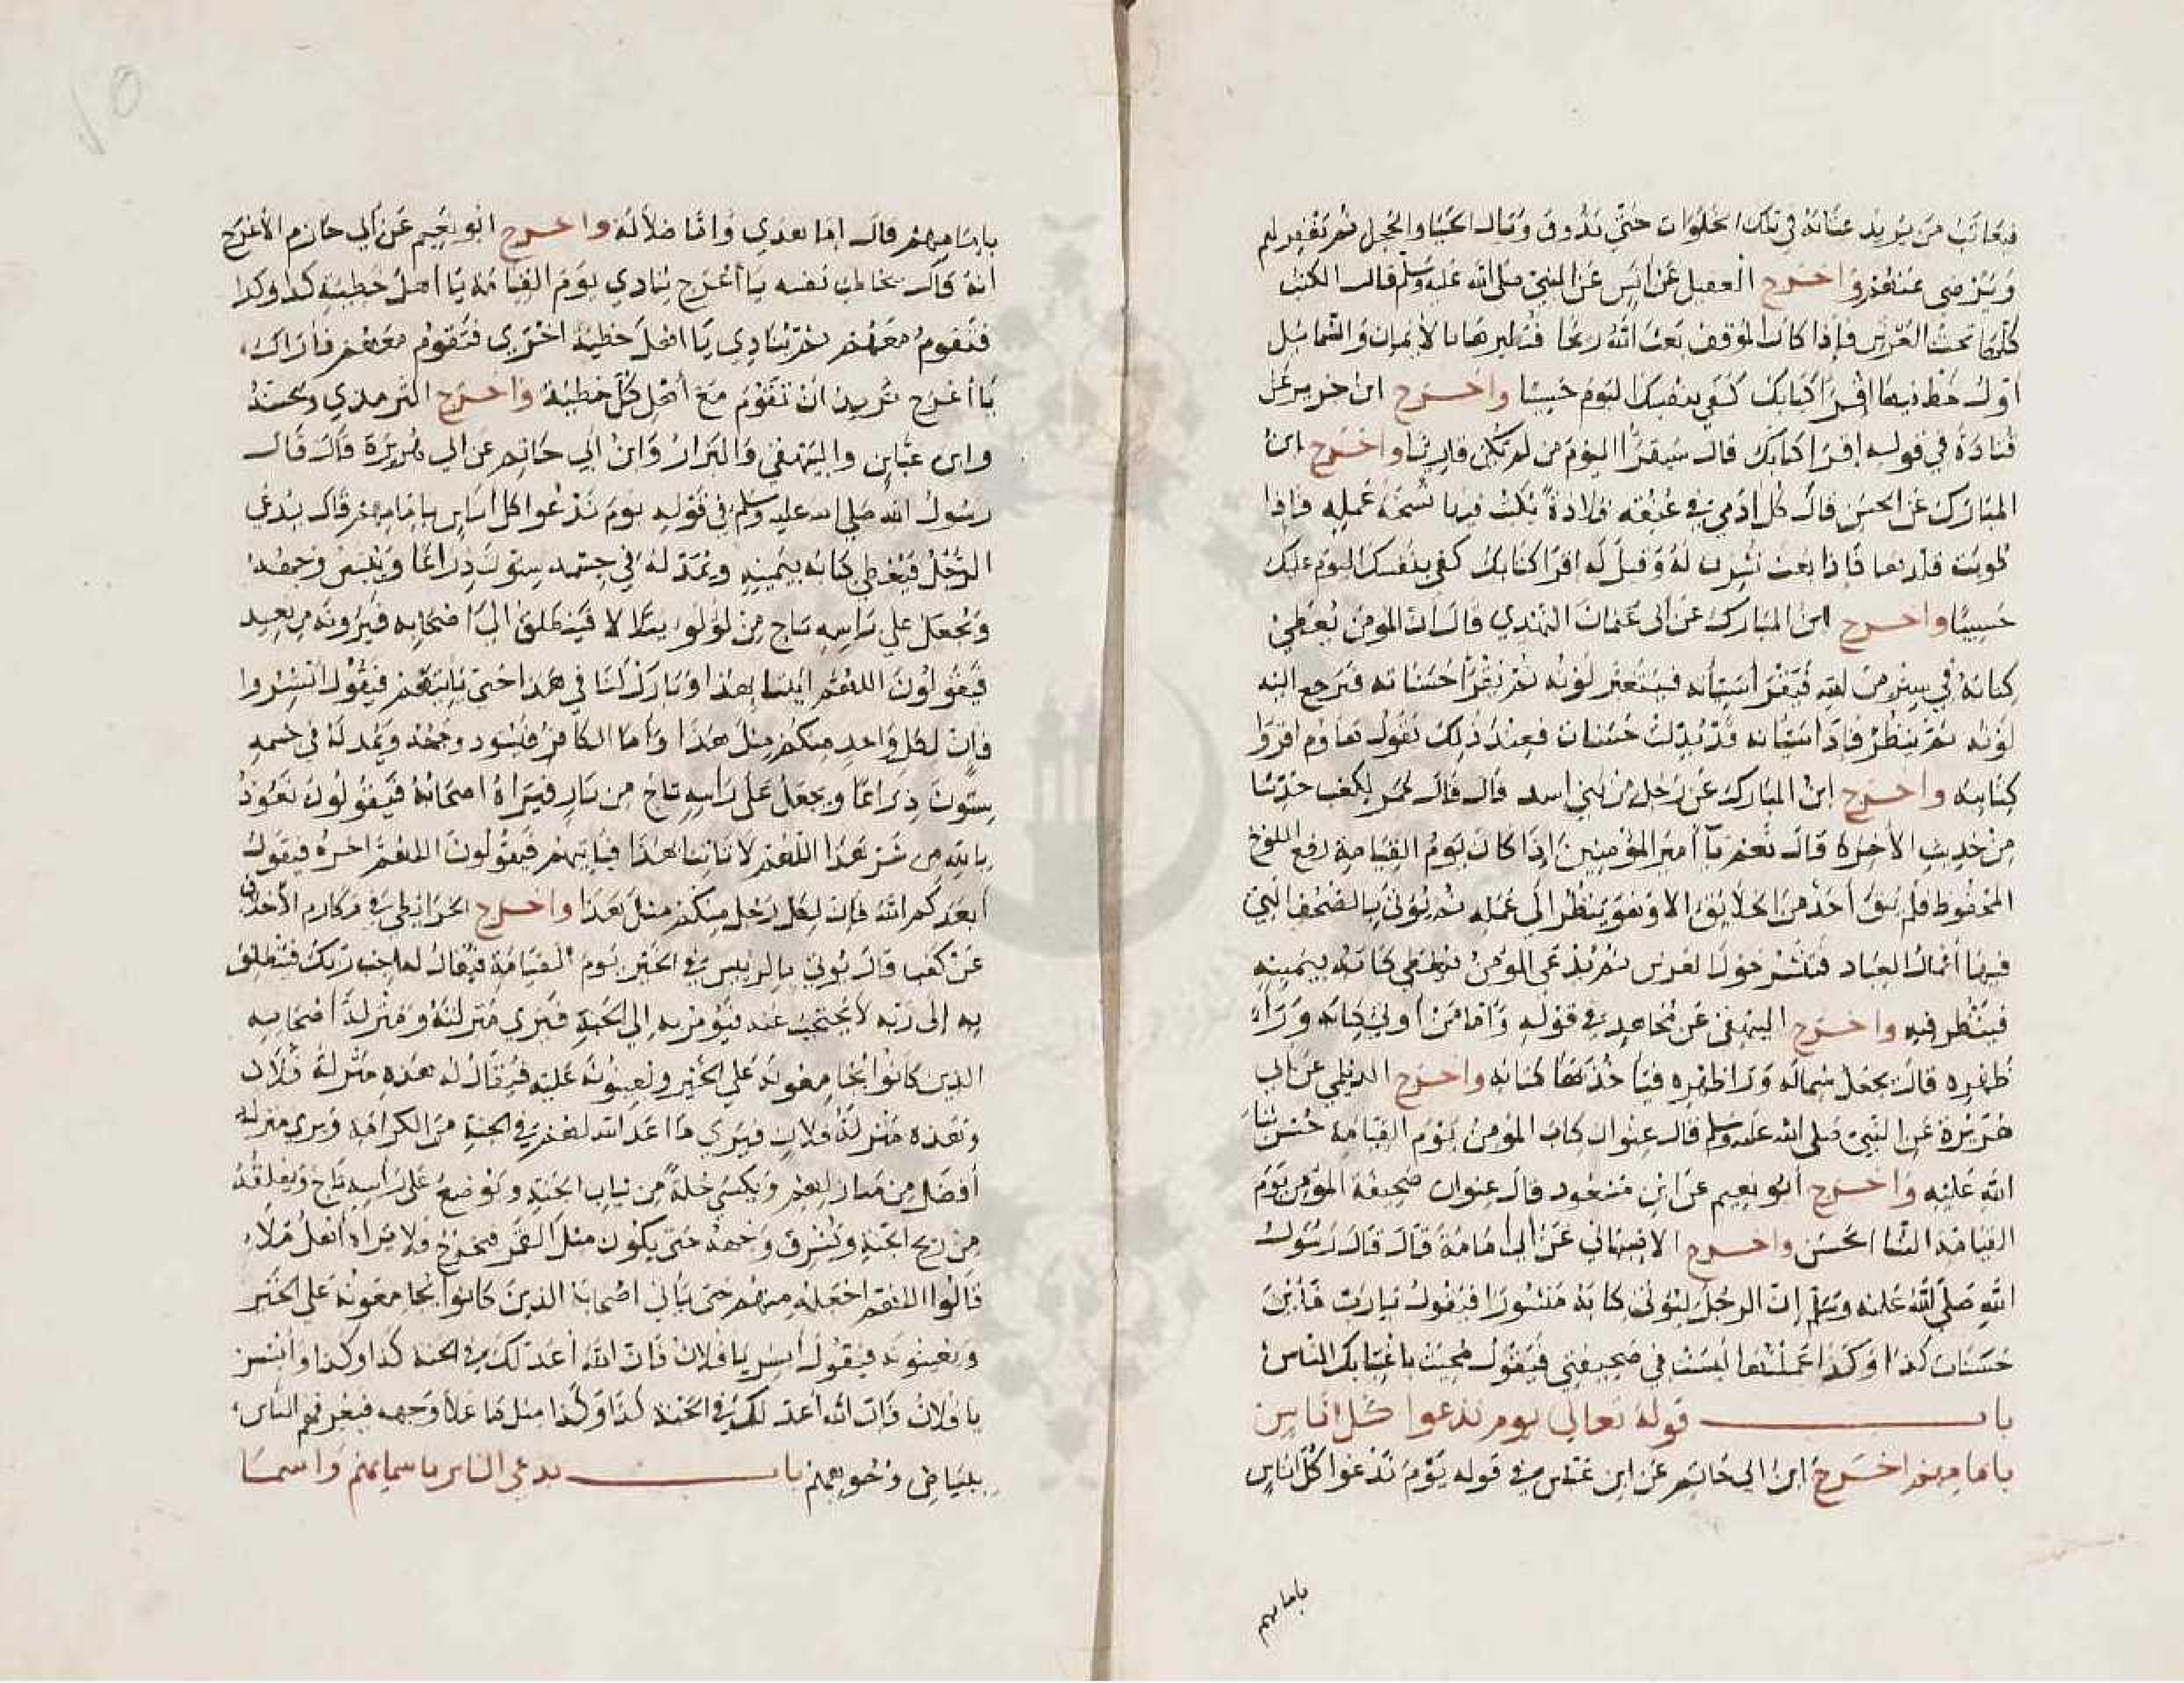 فيعاتب من يريد عتابه في تلك الخلوات حتى يذوق وبال الحيا والخجل ثم يغفر لهم
ويرضى عنهم واخرج العقيلي عن انس عن النبي صلى الله عليه وسلم قال الكتب
كلها تحت العرش فإذا كان الموقف بعث الله ريحا فتطيرها بالأيمان والشمائل
أول خط فيها اقرأ كتابك كفى بنفسك اليوم حسيبا واخرج ابن جرير عن
قتادة في قوله اقرا كتابك قال سيقرأ اليوم من لم يكن قارئا واخرج ابن
المبارك عن الحسن قال كل ادمي في عنقه قلادة يكتب فيها نسخة عمله فإذا
طويت قلدها فإذا بعث نشرت له وقيل له اقرا كتابك كفى بنفسك اليوم عليك
حسيبا واخرج ابن المبارك عن أبي عثمان النهدي قال ان المؤمن يعطى
كتابه في ستر من الله فيقرأ سيأته فيتغير لونه ثم يقرأ حسناته فترجع اليه
لونه ثم ينظر فإذا سيأته قد بدلت حسنات فعند ذلك يقول هاؤم اقرؤا
كتابيه واخرج ابن المبارك عن رجل من بني اسد قال قال عمر لكعب حدثنا
من حديث الآخرة قال نعم يا أمير المؤمنين إذا كان يوم القيامة رفع اللوح
المحفوظ فلم يبق أحد من الخلايق الا وهو ينظر الى عمله ثم يؤتى بالصحف التي
فيها أعمال العباد فتنثر حول العرش ثم يدعى المؤمن فيعطى كتابه بيمينه
فينظر فيه واخرج البيهقي عن مجاهد في قوله وأما من أوتي كتابه وراء
ظهره قال يجعل شماله ورا ظهره فيأخذ بها كتابه واخرج الديلمي عن ابي
هريرة عن النبي صلى الله عليه وسلم قال عنوان كتاب المؤمن يوم القيامة حسن ثناء
الله عليه واخرج أبو نعيم عن ابن مسعود قال عنوان صحيفة المؤمن يوم
القيامة الثنا الحسن واخرج الاصبهاني عن ابي امامة قال قال رسول
الله صلى الله عليه وسلم إن الرجل ليؤتى كتابه منشورا فيقول يا رب فأين
حسنات كذا وكذا عملتها ليست في صحيفتي فيقول محيت باغتيابك الناس
باب قوله تعالى يوم ندعوا كل اناس
بامامهم اخرج ابن ابي حاتم عن ابن عباس في قوله يوم ندعوا كل اناس
بامامهم
بإمامهم قال امام هدي وامام ضلالة واخرج أبو نعيم عن أبي حازم الأعرج
انه قال يخاطب نفسه يا أعرج ينادي يوم القيامة يا اهل خطيئة كذا وكذا
فتقوم معهم ثم ينادي يا اهل خطيئة اخرى فتقوم معهم فأراك
يا أعرج تريد ان تقوم مع أهل كل خطيئة واخرج الترمذي وحسنه
وابن عباس والبيهقي والبزار وابن أبي حاتم عن ابي هريرة قال قال
رسول الله صلى الله عليه وسلم في قوله يوم ندعوا كل اناس بامامهم قال يدعى
الرجل فيعطى كتابه بيمينه ويمد له في جسمه ستون ذراعا ويبيض وجهه
ويجعل على رأسه تاج من لؤلؤ يتلالا فينطلق الى اصحابه فيرونه من بعيد
فيقولون اللهم ايتنا بهذا وبارك لنا في هذا حتى يأتيهم فيقول أبشروا
فإن لكل واحد منكم مثل هذا وأما الكافر فيسود وجهه ويمد له في جسمه
ستون ذراعا ويجعل على رأسه تاج من نار فيراه اصحابه فيقولون نعوذ
بالله من شر هذا اللهم لا تاتنا بهذا فيأتيهم فيقولون اللهم اخزه فيقول
أبعدكم الله فإن لكل رجل منكم مثل هذا واخرج الخرائطي في مكارم الأخلاق
عن كعب قال يؤتى بالرئيس في الخير يوم القيامة فيقال له اجب ربك فينطلق
به إلى ربه لا يحتجب عنه فيؤمر به إلى الجنة فيرى منزلته ومنزلة أصحابه
الذين كانوا يجامعونه على الخير ويعينونه عليه فيقال له هذه منزلة فلان
وهذه منزلة فلان فيرى ما اعد الله لهم في الجنة من الكرامة ويرى منزلته
أفضل من منازلهم ويكسى حلة من ثياب الجنة ويوضع على رأسه تاج ويعلقه
من ريح الجنة ويشرق وجهه حتى يكون مثل القمر فيخرج فلا يراه أهل ملاء
قالوا اللهم اجعله منهم حتى يأتي اصحابه الذين كانوا يجامعونه على الخير
ويعينونه فيقول أبشر يا فلان فان الله أعد لك في الجنة كذا وكذا وأبشر
يا فلان فان الله أعد لك في الجنة كذا وكذا مثل ما علا وجهه فيعرفهم الناس
ببياض وجوههم باب يدعى الناس باسمايهم واسما